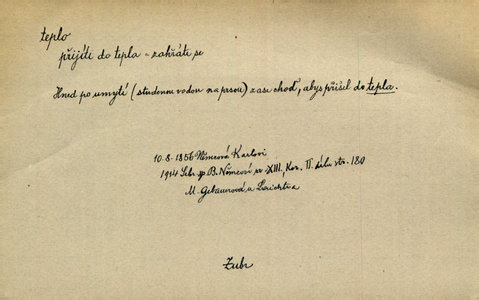 teplo
přijíti do tepla = zahřáti se
Hned po umytí (studenou vodou na prsou) zase choď, abys přišel do tepla.
10.8.1856 Němcová Karlovi
1914 Sebr. sp. B. Němcové sv. XIII., Kor. II. dílu str. 180
M. Gebauerová u
Zubr